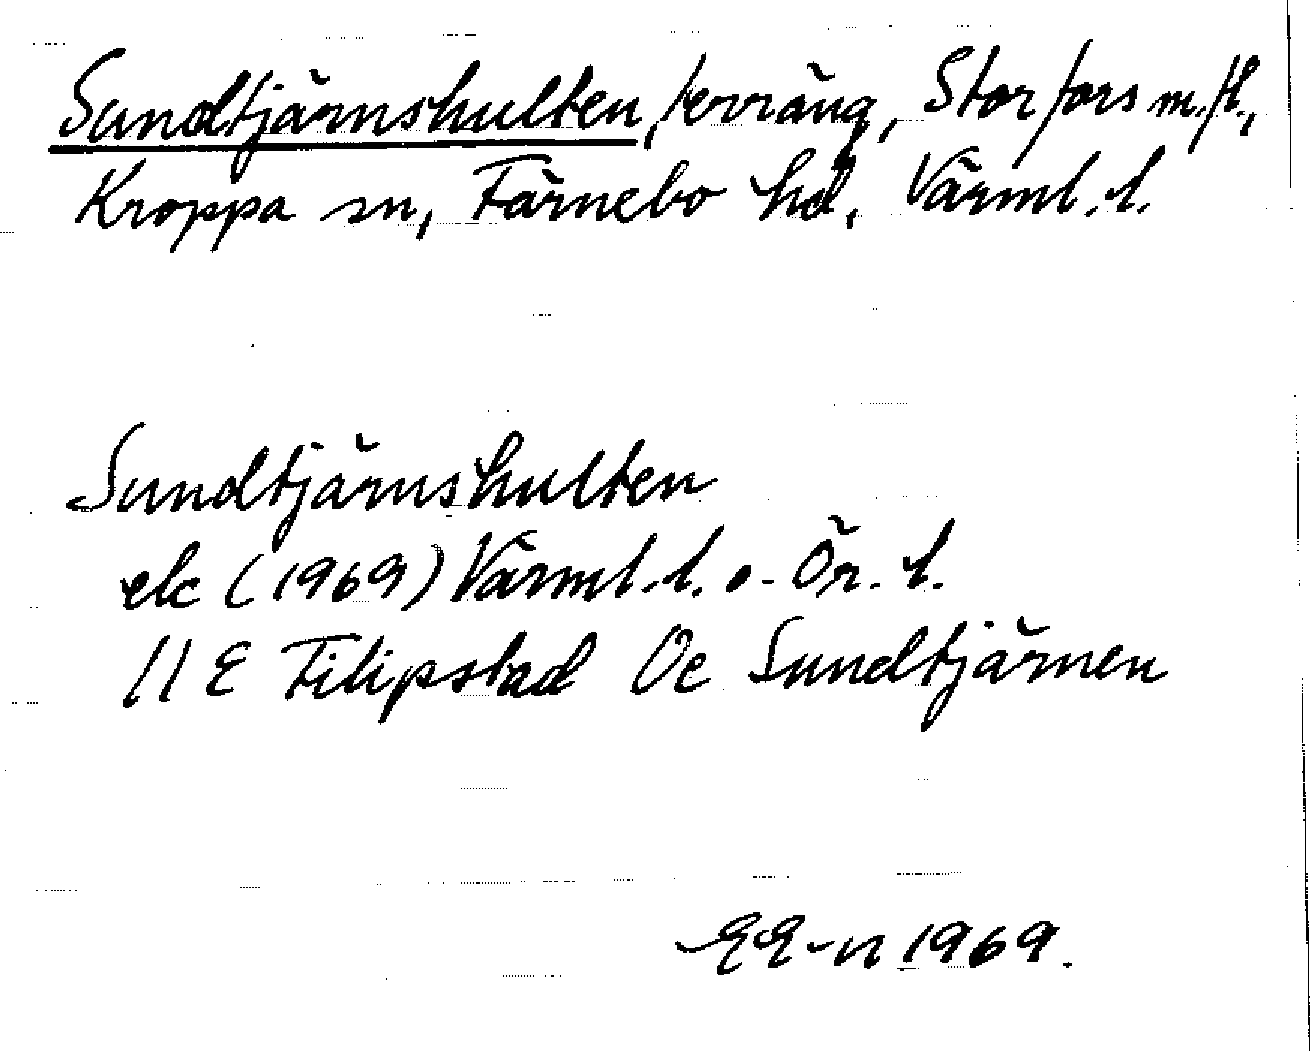 Sundtjärnshulten, terräng, Storfors m.fl.,
Kroppa sn, Färnebo hd, Värml. l.
Sundtjärnshulten
ek (1969) Värml. l. o. Ör. l.
11 E Filipstad 0c Sundtjärnen
EE-n 1969.